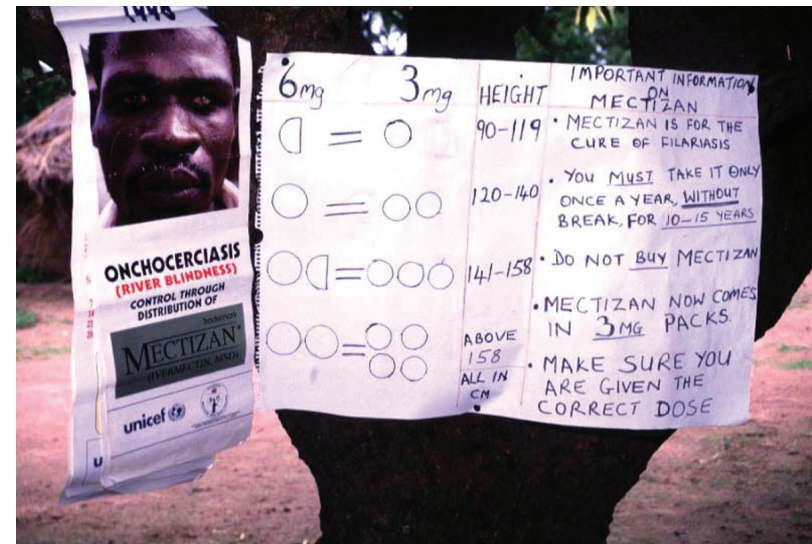 1998
ONCHOCERCIASIS
(RIVER BLINDNESS)
CONTROL THROUGH
DISTRIBUTION OF
trademark
MECTIZAN
(IVERMECTIN, MSD)
unicef
U
6mg 3mg HEIGHT
= 90-119
= 120-140
= 141-158
= ABOVE
158
ALL IN
CM
IMPORTANT INFORMATION
ON
MECTIZAN
• MECTIZAN IS FOR THE
CURE OF FILARIASIS
• YOU MUST TAKE IT ONLY
ONCE A YEAR, WITHOUT
BREAK, FOR 10-15 YEARS
• DO NOT BUY MECTIZAN
• MECTIZAN NOW COMES
IN 3MG PACKS.
• MAKE SURE YOU
ARE GIVEN THE
CORRECT DOSE